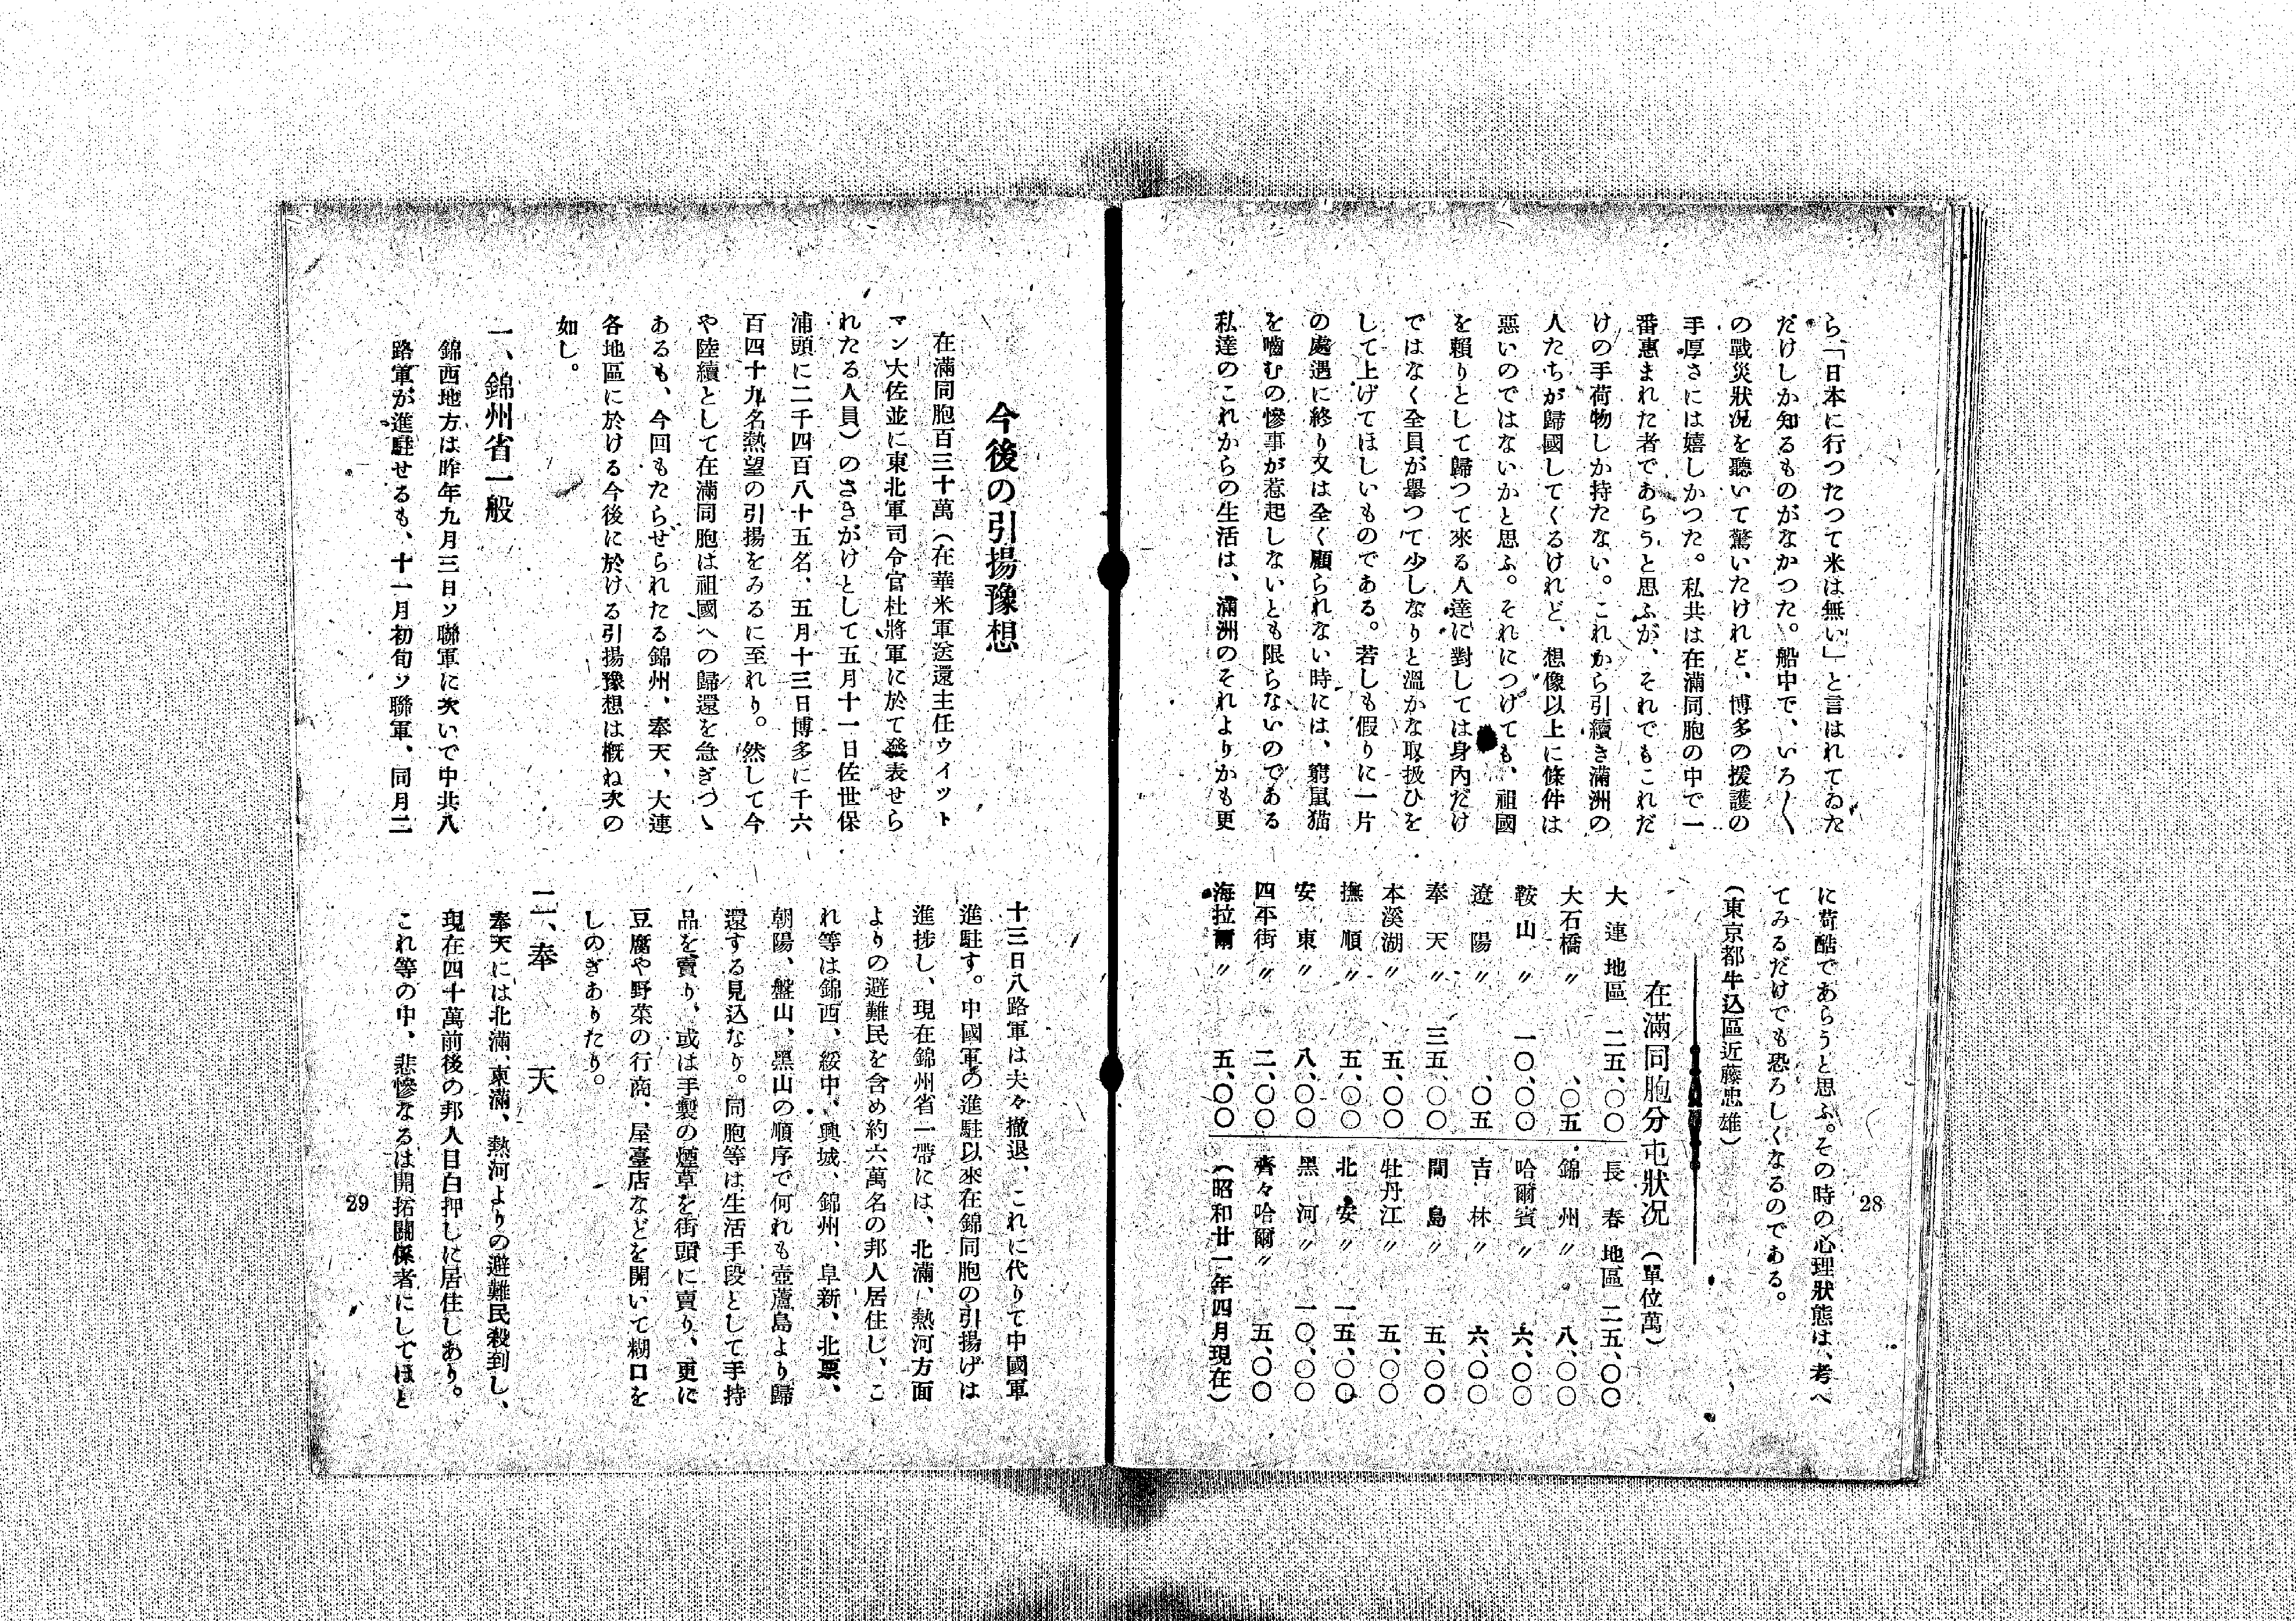 ら、「日本に行つたつて米は無い」と言はれてゐた
だけしか知るものがなかつた。船中で、いろ〱
の戰災狀況を聽いて驚いたけれど、博多の援護の
手厚さには嬉しかつた。私共は在滿同胞の中で一
番惠まれた者であらうと思ふが、それでもこれだ
けの手荷物しか持たない。これから引續き滿洲の
人たちが歸國してくるけれど、想像以上に條件は
惡いのではないかと思ふ。それにつけても、祖國
を賴りとして歸つて來る人達に對しては身內だけ
ではなく全員が擧つて少しなりと溫かな取扱ひを
して上げてほしいものである。若しも假りに一片
の處遇に終り又は全く顧られない時には、窮鼠猫
を嚙むの慘事が惹起しないとも限らないのである
私達のこれからの生活は、滿洲のそれよりかも更
に苛酷であらうと思ふ。その時の心理狀態は、考へ
てみるだけでも恐ろしくなるのである。
（東京都牛込區近藤忠雄）
在滿同胞分屯狀況（單位萬）
大連地區 二五、〇〇
大石橋〃 、〇五
鞍山〃 一〇、〇〇
遼陽〃 、〇五
奉天〃 三五、〇〇
本溪湖〃 五、〇〇
撫順〃 五、〇〇
安東〃 八、〇〇
四平街〃 二、〇〇
海拉爾〃 五、〇〇
長春地區 二五、〇〇
錦州〃 八、〇〇
哈爾賓〃 六、〇〇
吉林〃 六、〇〇
間島〃 五、〇〇
牡丹江〃 五、〇〇
北安〃 一五、〇〇
黑河〃 一〇、〇〇
齊々哈爾〃 五、〇〇
（昭和廿一年四月現在）
28
今後の引揚豫想
在滿同胞百三十萬（在華米軍送還主任ウイット
マン大佐並に東北軍司令官杜將軍に於て發表せら
れたる人員）のさきがけとして五月十一日佐世保
浦頭に二千四百八十五名、五月十三日博多に千六
百四十九名熱望の引揚をみるに至れり。然して今
や陸續として在滿同胞は祖國への歸還を急ぎつゝ
あるも、今回もたらせられたる錦州、奉天、大連
各地區に於ける今後に於ける引揚豫想は槪ね次の
如し。
一、錦州省一般
錦西地方は昨年九月三日ソ聯軍に次いで中共八
路軍が進駐せるも、十一月初旬ソ聯軍、同月二
十三日八路軍は夫々撤退、これに代りて中國軍
進駐す。中國軍の進駐以來在錦同胞の引揚げは
進捗し、現在錦州省一帶には、北滿、熱河方面
よりの避難民を含め約六萬名の邦人居住し、こ
れ等は錦西、綏中、興城、錦州、阜新、北票、
朝陽、盤山、黑山の順序で何れも壺蘆島より歸
還する見込なり。同胞等は生活手段として手持
品を賣り、或は手製の煙草を街頭に賣り、更に
豆腐や野菜の行商、屋臺店などを開いて糊口を
しのぎありたり。
二、奉　天
奉天には北滿、東滿、熱河よりの避難民殺到し、
現在四十萬前後の邦人目白押しに居住しあり。
これ等の中、悲慘なるは開拓關係者にしてほと
29